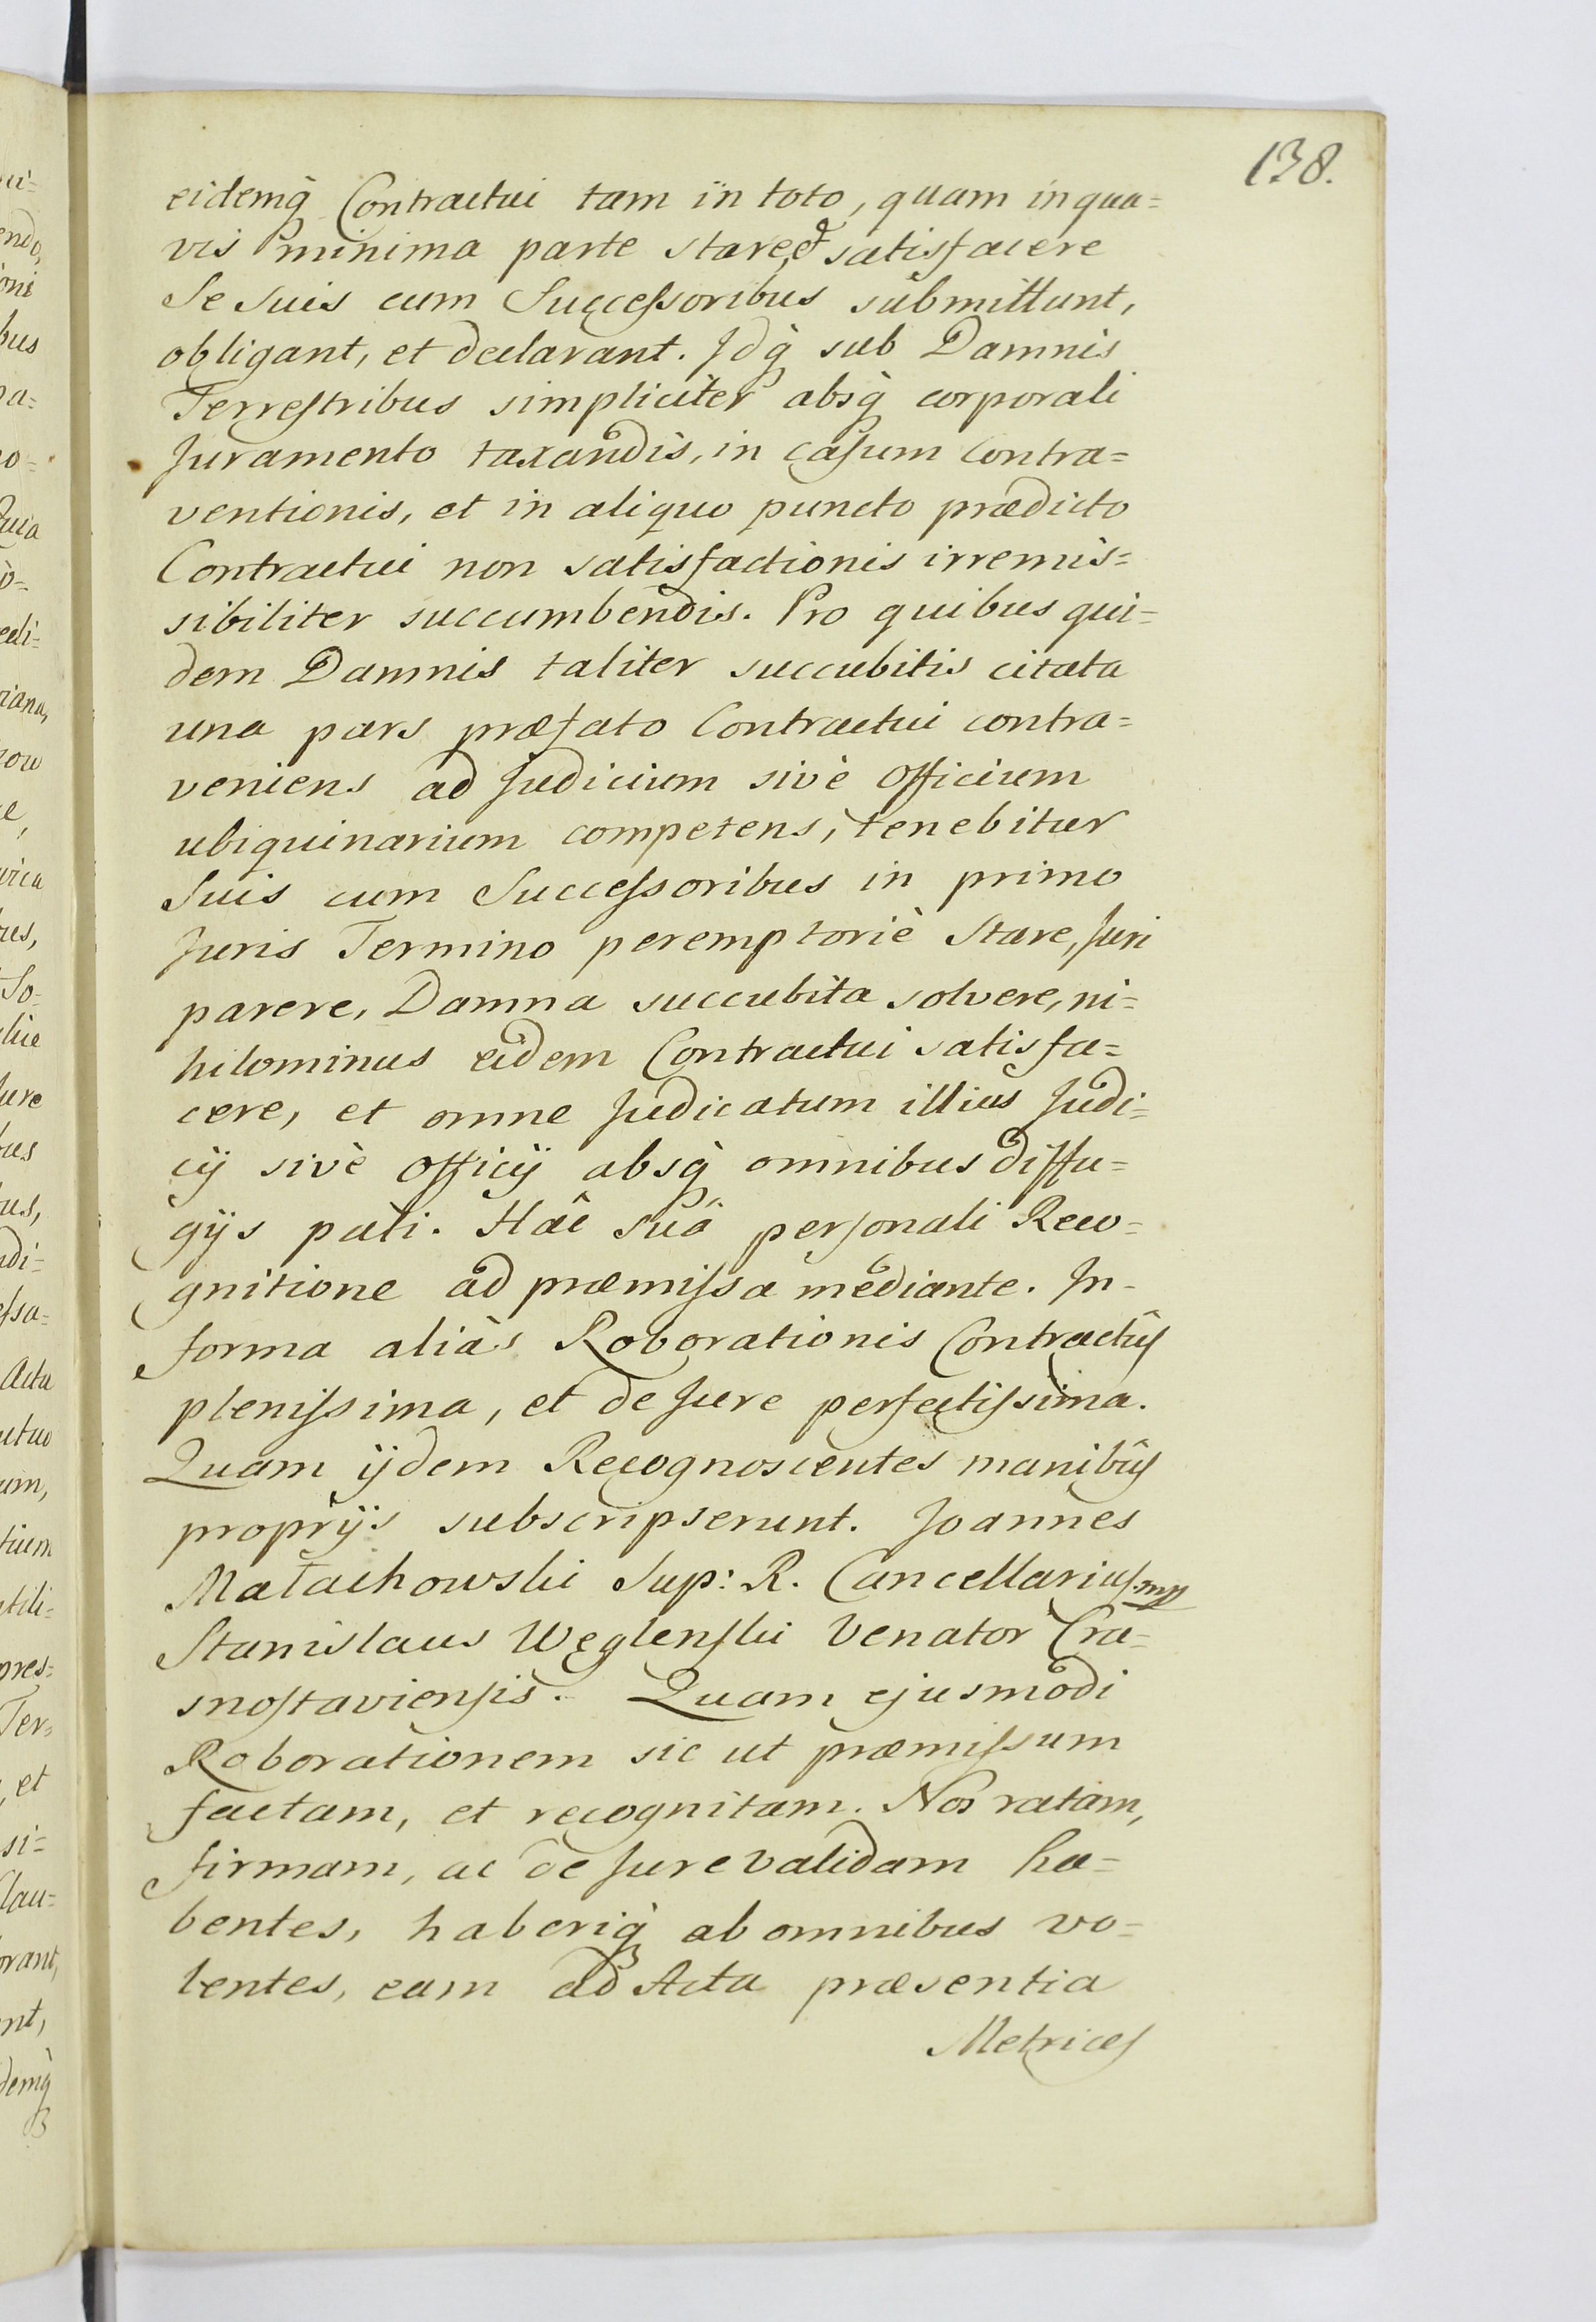 138.
eidemq̀ Contractui tam in toto, quam in qua=
vis minima parte stare, et satisfacere
Se suis cum Successoribus submittunt,
obligant, et declarant. Idq̀ sub Damnis
Terrestribus simpliciter absq̀ corporali
Juramento taxandis, in casum contra=
ventionis, et in aliquo puncto prædicto
Contractui non satisfactionis irremis=
sibiliter succumbendis. Pro quibus qui=
dem Damnis taliter succubitis citata
una pars præfato Contractui contra=
veniens ad Judicium sivè Officium
ubiquinarium competens, tenebitur
Suis cum Successoribus in primo
Juris Termino peremptoriè Stare, Juri
parere, Damna succubita solvere, ni=
hilominus eidem Contractui satisfa=
cere, et omne Judicatum illius Judi=
cij sivè Officij absq̀ omnibus diffu=
gijs pati. Hâc suâ personali Reco=
gnitione ad præmissa mediante. In-
forma aliàs Roborationis Contractûs
plenissima, et de Jure perfectissima.
Quam ijdem Recognoscentes manibus
proprijs subscripserunt. Joannes
Małachowski Sup: R. Cancellarius mp
Stanislaus Węglenski Venator Cra=
snostaviensis. Quam ejusmodi
Roborationem sic ut præmissum
factam, et recognitam. Nos ratam,
firmam, ac de Jure validam ha=
bentes, haberiq̀ ab omnibus vo=
lentes, eam ad Acta præsentia
Metrices